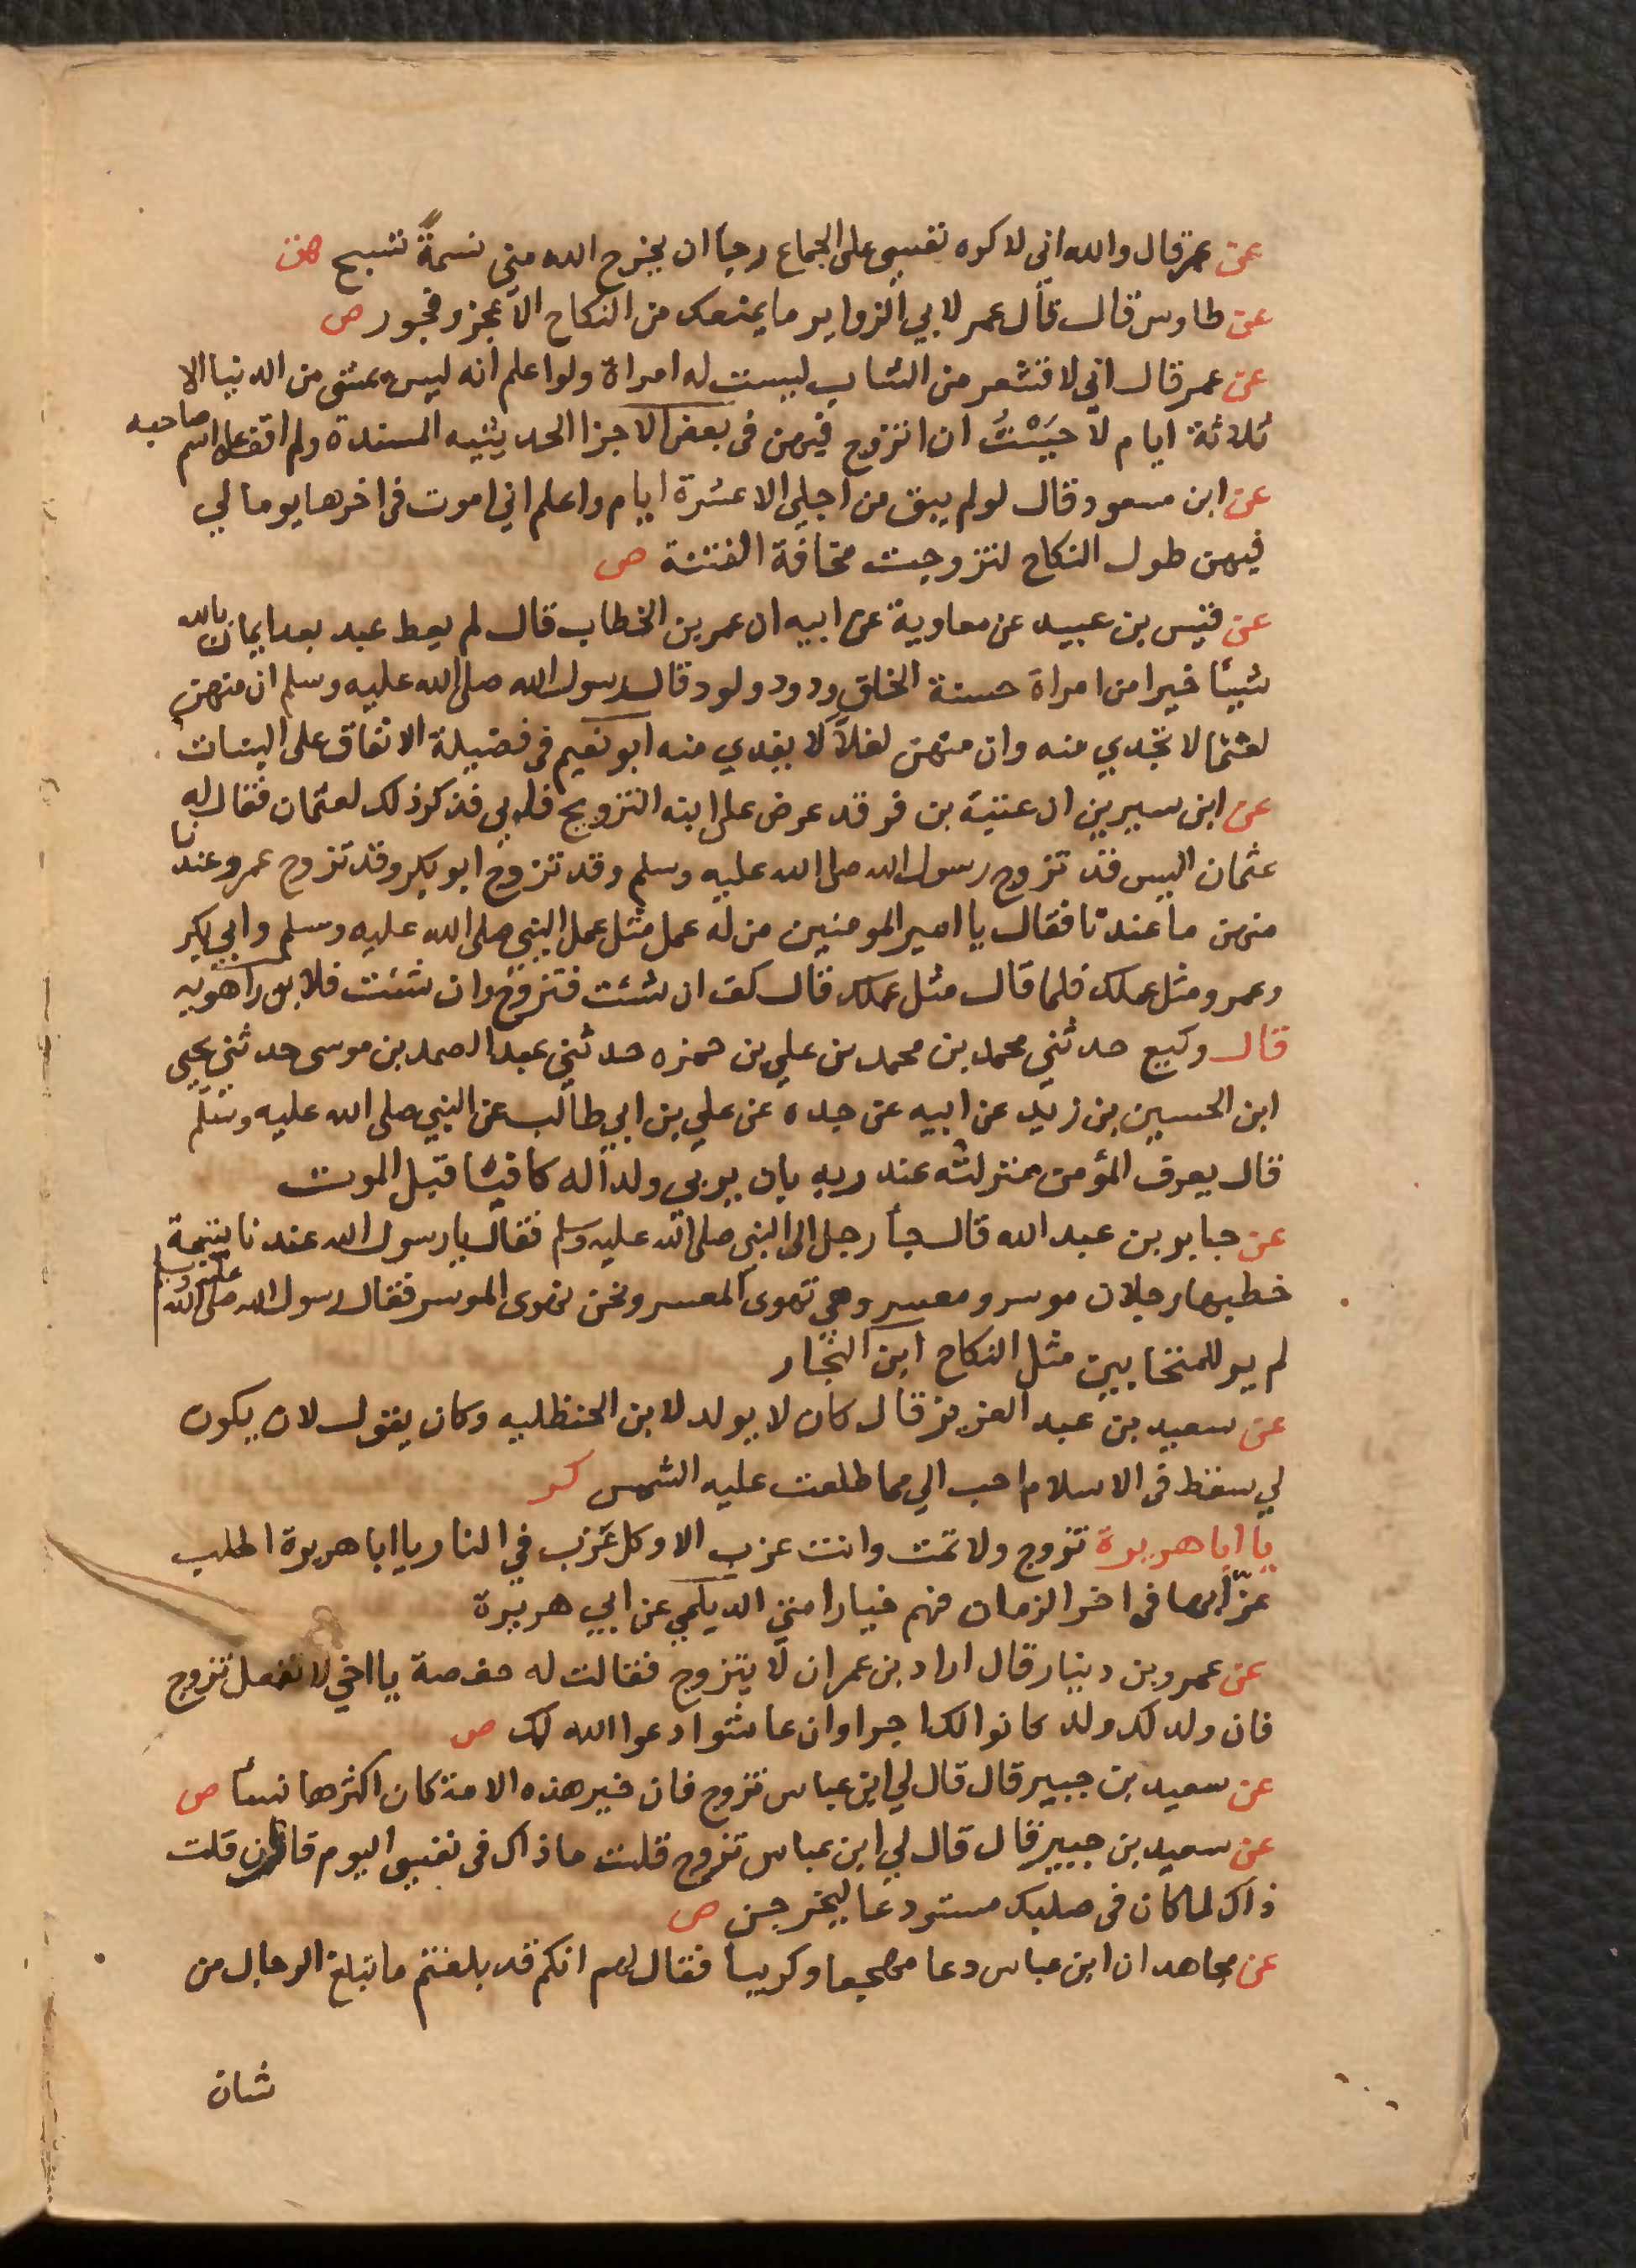 عن عمر قال والله اني لاكره نفسي على الجماع رجا ان يخرج الله مني نسمةً تسبح هن
عن طاوس قال قال عمر لابي الزوايد ما يمنعك من النكاح الا عجز وفجور ص
عن عمر قال اني لاقشعر من الشاب ليست له امراة ولو اعلم انه ليس من الدنيا الا
ثلاثة ايام لاحببت ان اتزوج فيهن في بعض الاجزا الحديثيه المسندة ولم اقف على اسم صاحبه
عن ابن مسعود قال لو لم يبق من اجلي الا عشرة ايام واعلم اني اموت في اخرها يوما لي
فيهن طول النكاح لتزوجت مخافة الفتنة ص
عن قيس بن عبيد عن معاوية عن ابيه ان عمر بن الخطاب قال لم يعط عبد بعد ايمان بالله
شيئا خيرا من امراة حسنة الخلق ودود ولود قال رسول الله صلى الله عليه وسلم ان منهن
لغنما لا تجدي منه وان منهن لغلاً لا يفدي منه ابو نعيم في فضيلة الانفاق على البنات
عن ابن سيرين ان عتبة بن فرقد عرض على ابنه التزويج فابى فذكر ذلك لعثمان فقال له
عثمان اليس قد تزوج رسول الله صلى الله عليه وسلم وقد تزوج ابو بكر وقد تزوج عمر وعندنا
منهن ما عندنا فقال يا امير المومنين من له عمل مثل عمل النبي صلى الله عليه وسلم وابي بكر
وعمر ومثل عملك فلما قال مثل عملك قال كف ان شئت فتزوج وان شئت فلا بن راهويه
قال وكيع حدثني محمد بن محمد بن علي بن حمزه حدثني عبد الصمد بن موسى حدثني يحيى
ابن الحسين بن زيد عن ابيه عن جده عن علي بن ابي طالب عن النبي صلى الله عليه وسلم
قال يعرف المؤمن منزلته عند ربه بان يربي ولدا له كافيا قبل الموت
عن جابر بن عبد الله قال جا رجل الى النبي صلى الله عليه وسلم فقال يا رسول الله عندنا يتيمة
خطبها رجلان موسر ومعسر وهي تهوى المعسر ونحن نهوى الموسر فقال رسول الله صلى الله عليه وسلم
لم ير للمتحابين مثل النكاح ابن النجار
عن سعيد بن عبد العزيز قال كان لا يولد لابن الحنظليه وكان يقول لان يكون
لي سقط في الاسلام احب الي مما طلعت عليه الشمس كر
يا ابا هريرة تزوج ولا تمت وانت عزب الا وكل عزب في النار يا ابا هريرة اطلب
عزابها في اخر الزمان فهم خيار امتي الديلمي عن ابي هريرة
عن عمرو بن دينار قال اراد بن عمر ان لا يتزوج فقالت له حفصة يا اخي لا تفعل تزوج
فان ولد لك ولد كانوا لك اجرا وان عاشوا دعوا الله لك ص
عن سعيد بن جبير قال قال لي ابن عباس تزوج فان خير هذه الامة كان اكثرها نسأ ص
عن سعيد بن جبير قال قال لي ابن عباس تزوج قلت ما ذاك في نفسي اليوم قال ان قلت
ذاك لما كان في صلبك مستودعا ليخرجن ص
عن مجاهد ان ابن عباس دعا وكريبا فقال لهم انكم قد بلغتم ما تبلغ الرجال من
شان